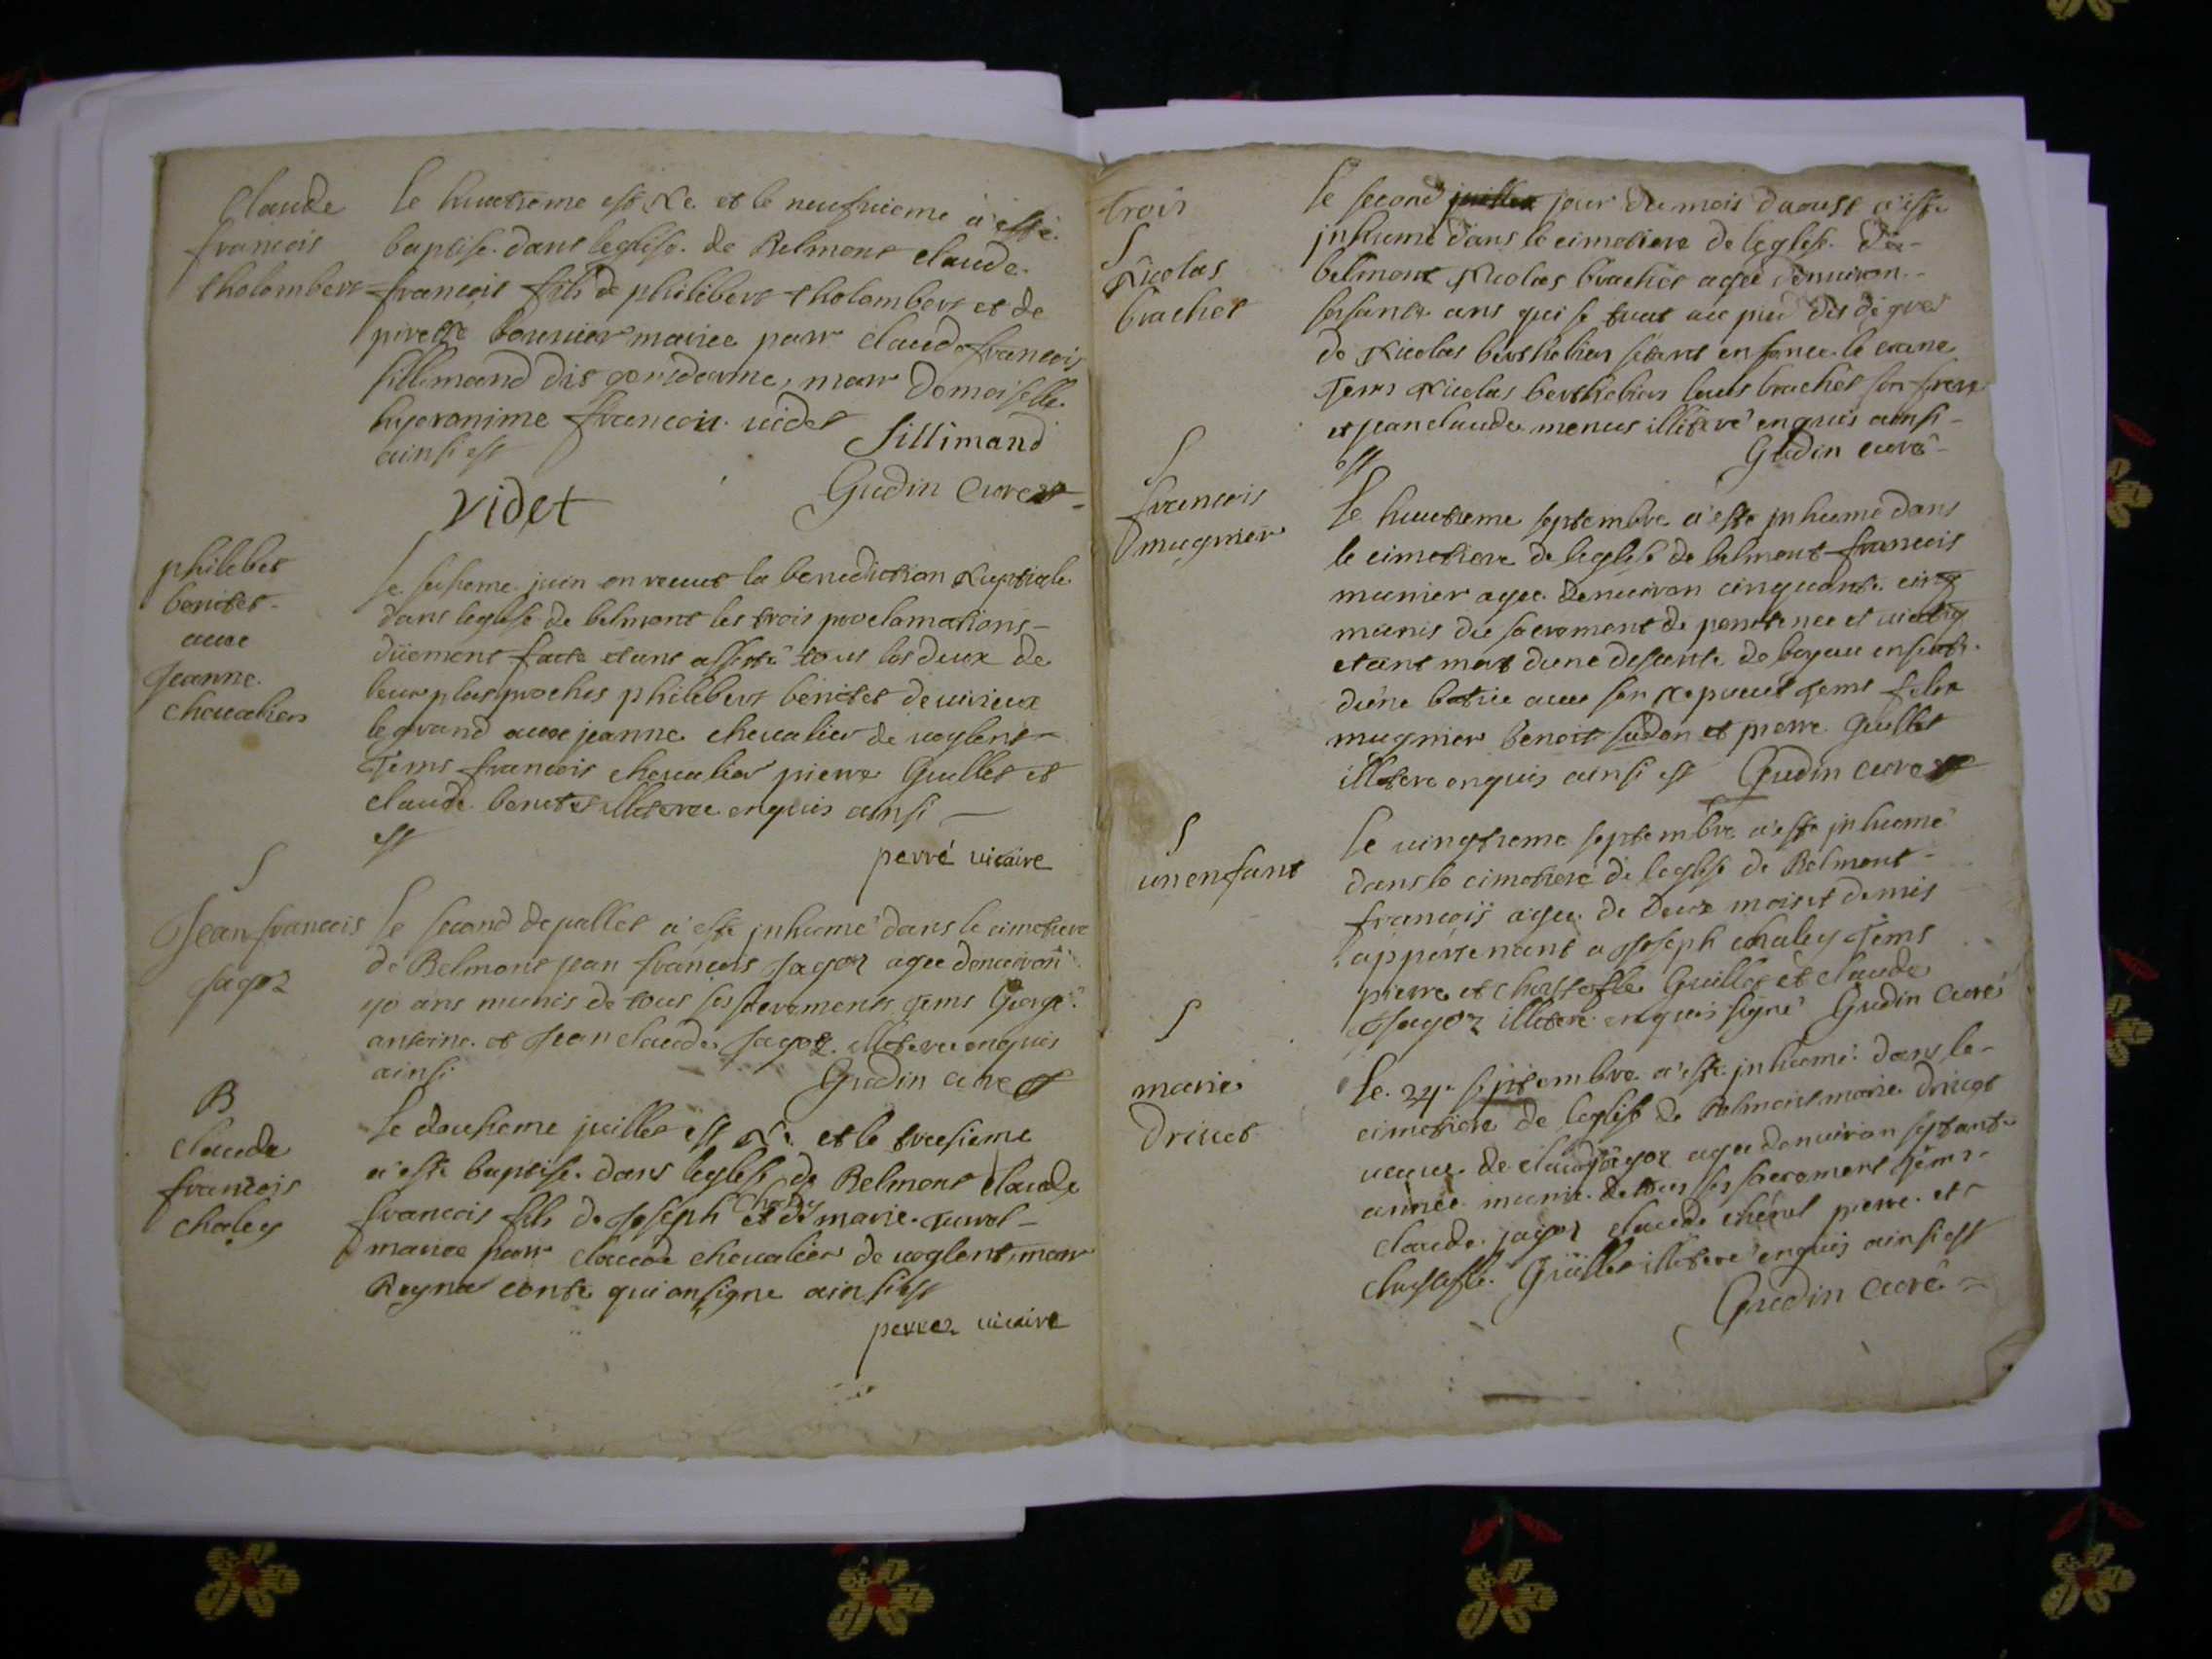 Claude
francois
tholombert
Le huictieme est Ne et le neufuieme a esté
baptise dans leglise de Belmont claude
francois fils de philibert tholombert et de
pirette bouuier mariee parr claude francois
sillimand dit gensdarme, marr demoiselle
hyeronime francois videt
ainsi est
Sillimand
Gudin Cure
videt
philebet
benitet
auec
Jeanne
cheualier
Le sesieme juin on receut la benediction Nuptiale
dans leglise de belmont les trois proclamations
düement faite etant assisté tous les deux de
leur plus proches philibert benitet de uirieux
le grand auec jeanne cheualier de uoglent
Tems francois cheualier pierre Guillet et
claude benitet illiteree enquis ainsi
est
perré uicaire
S
Jean francois
Jagoz
Le second de juillet a este jnhumé dans le cimetiere
de Belmont jean francois Jagoz agee denuiron
40 ans munis de tous ses sacrements Tems George
antoine et Jean claude Jagoz illiteree enquis
ainsi
Gudin cure
B
claude
francois
chaley
Le dousieme juillet est Ne et le tresieme
a este baptise dans leglise de Belmont claude
francois fils de Joseph chaley et de marie
mariee parr claude cheualier de uoglent, marr
Reyne conte qui on signe ainsi est
perrez uicaire
trois
S
Nicolas
brachet
Le second jour du mois daoust a este
jnhumé dans le cimetiere de leglise de
belmont Nicolas brachet agée denuiron
sesante ans qui se tuat au pied des degres
de Nicolas berthelier setant enfoncé le crane
Tems Nicolas berthelier louis brachet son frere
et jean claude menus illiteré enquis ainsi
est
Gudin curé
S
francois
mugnier
Le huictieme septembre a este jnhumé dans
le cimetiere de leglise de belmont francois
munier agee denuiron cinquante cinq
munis du sacrement de penitence et uiatiq
etant mort dune desente de boyau ensuite
dune batue auec son Nepueut Tems felix
mugnier Benoit sudan et pierre Guillet
illitere enquis ainsi est Gudin cure
S
un enfant
Le uingtieme septembre a este jnhumé
dans le cimetiere de leglise de Belmont
francois agee de Deux mois et demis
appertenant a Joseph chaley Tems
pierre et christofle Guillet et claude
Jagoz illiteré enquis signé Gudin Curé
S
marie
Driuet
Le 24e septembre a este jnhumé dans le
cimetiere de leglise de Belmont marie Driuet
ueuue de claude jagoz agee denuiron septante
année munie de tous ses sacrement Tems
claude jagoz claude pierre et
christofle Guillet illiteré enquis ainsi est
Gudin curé